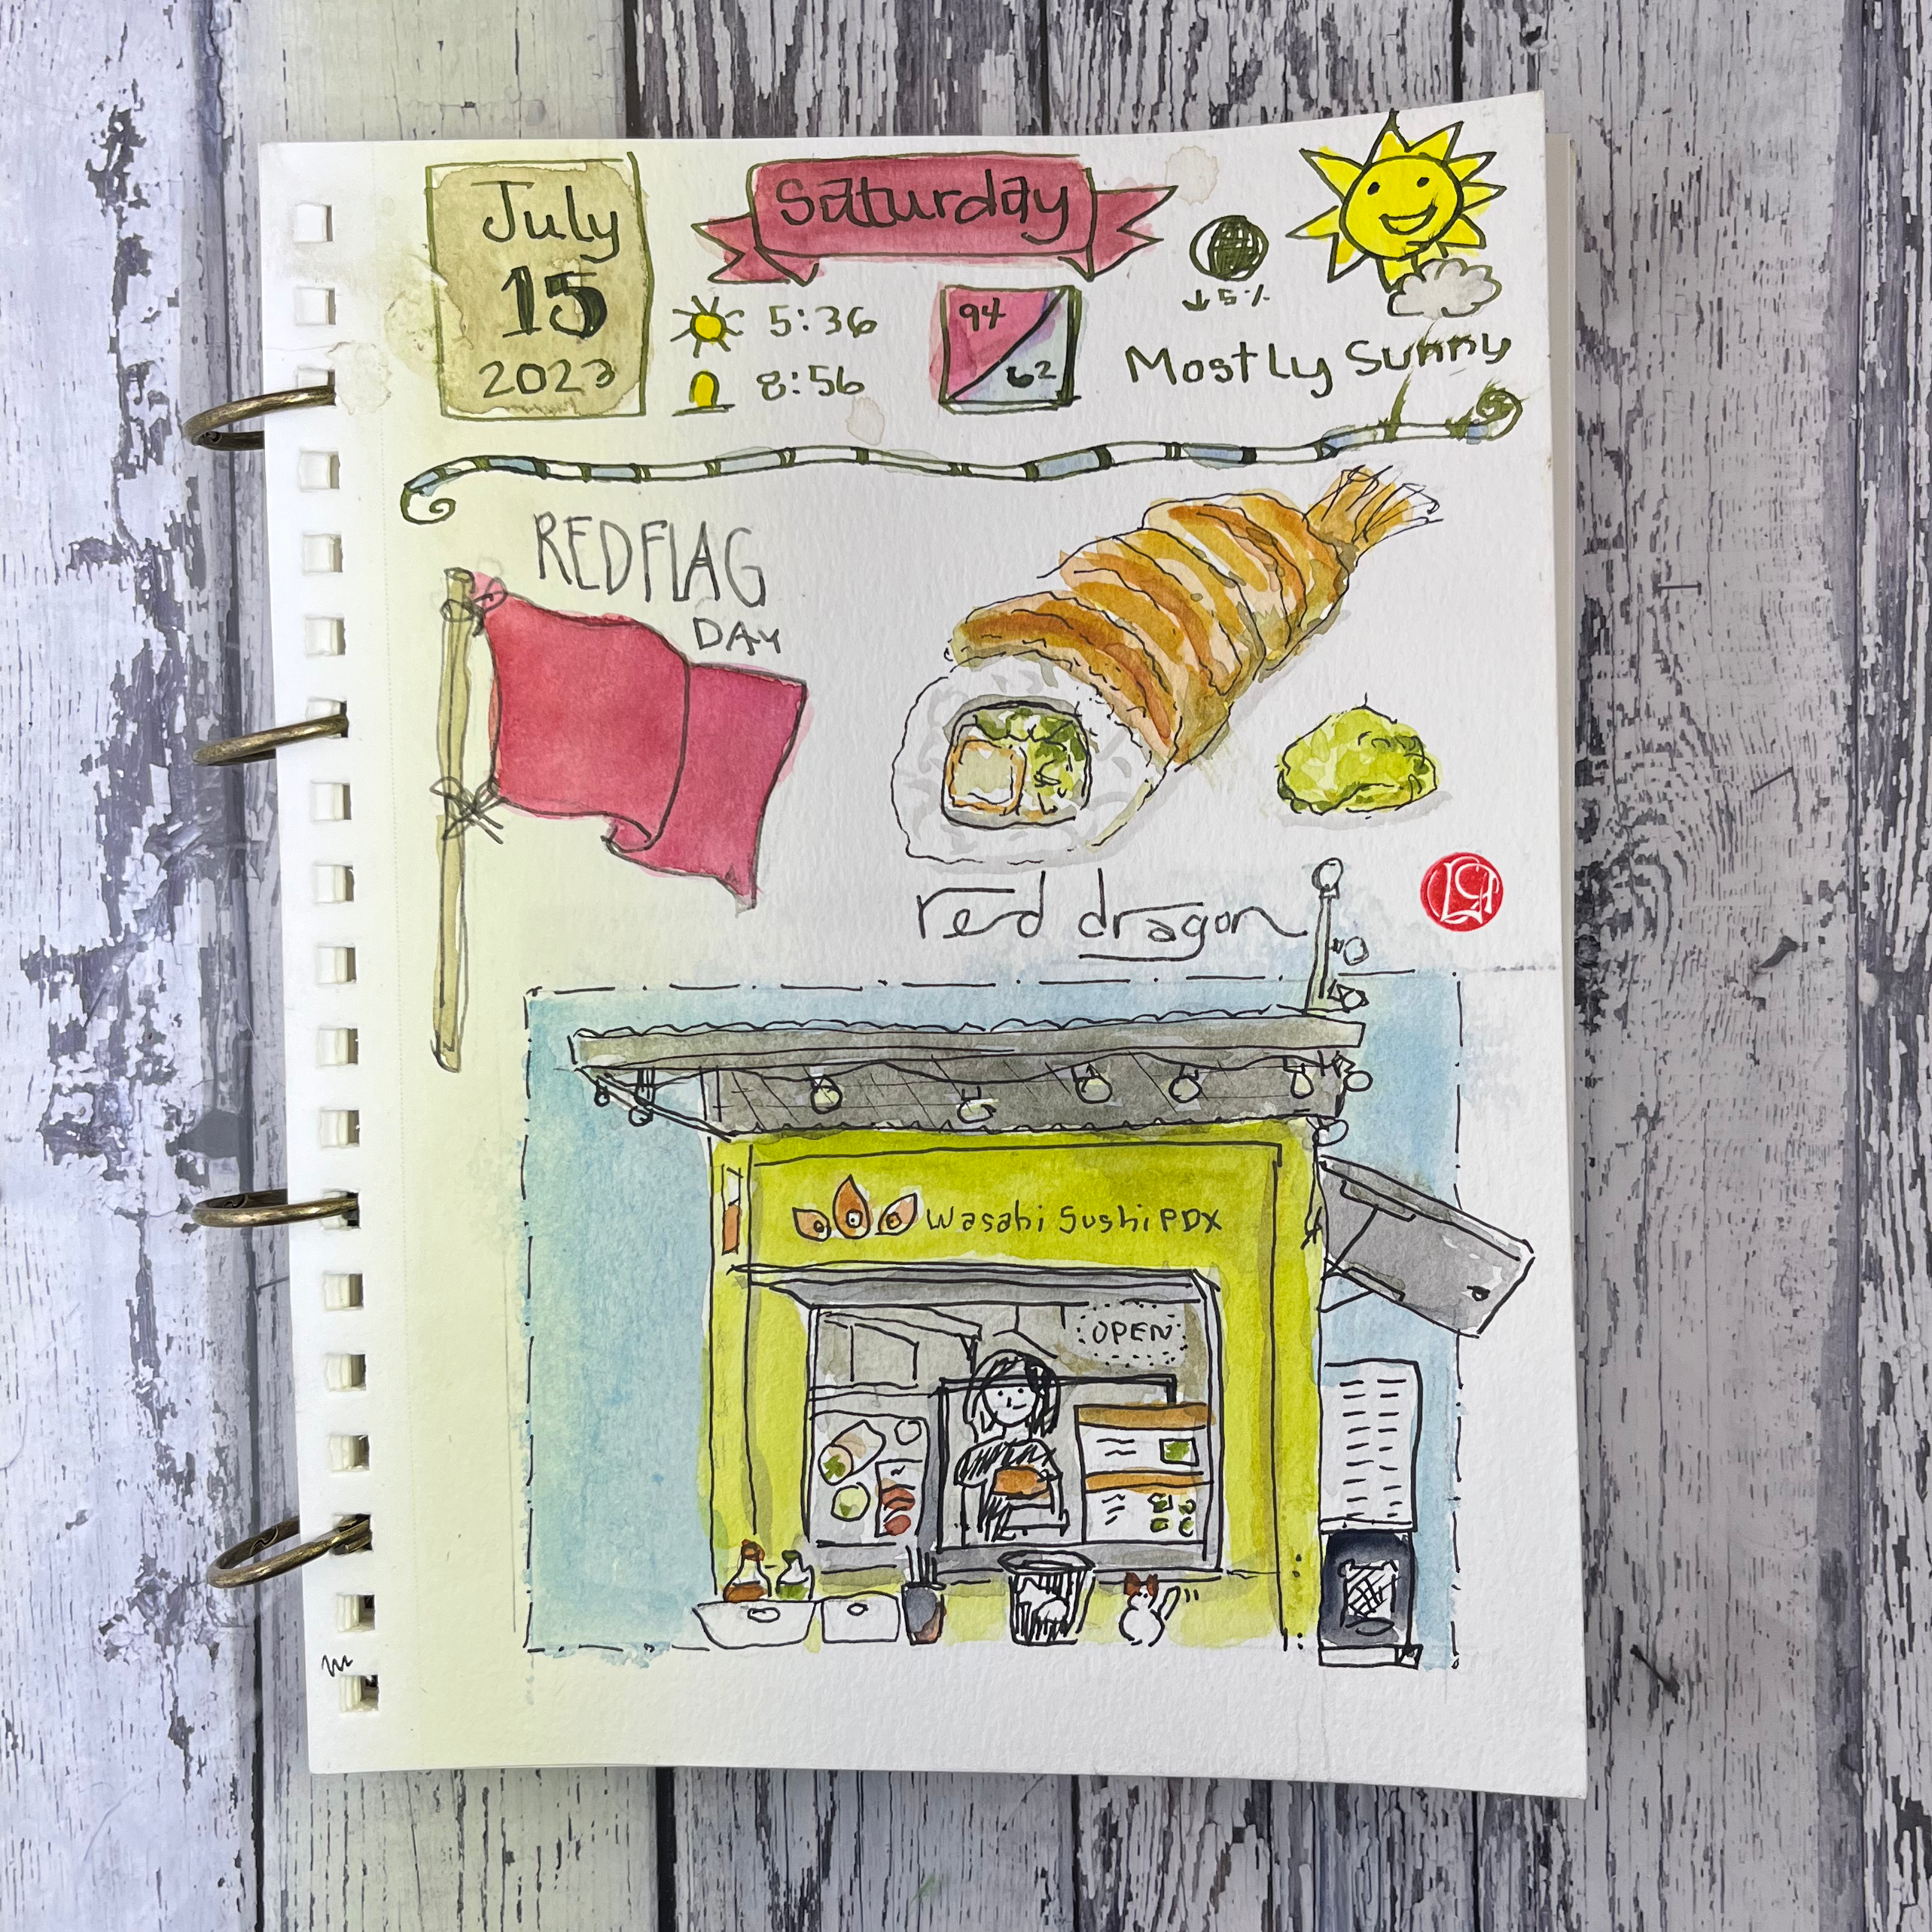 July
15
2023
Saturday
5:36
8:56
94
62
↓5%
Mostly Sunny
RED FLAG
DAY
red dragon
Wasabi Sushi PDX
OPEN